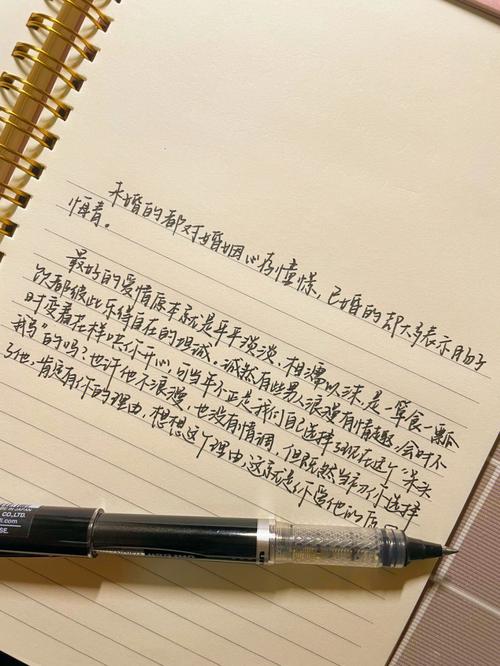 未婚的都对婚姻心存憧憬，已婚的却大多表示肠子
悔青。
最好的爱情原本就是平平淡淡，相濡以沫，是一箪食一瓢
饮都彼此乐得自在的坦诚。诚然有些男人浪漫有情趣，会时不
时变着花样哄你开心，可当年不正是我们自己选择了现在这个“呆头
鹅”的吗；也许他不浪漫，也没有情调，但既然当初你选择
了他，肯定有你的理由，想想这个理由，这就是你爱他的
MADE IN JAPAN
CO., LTD.